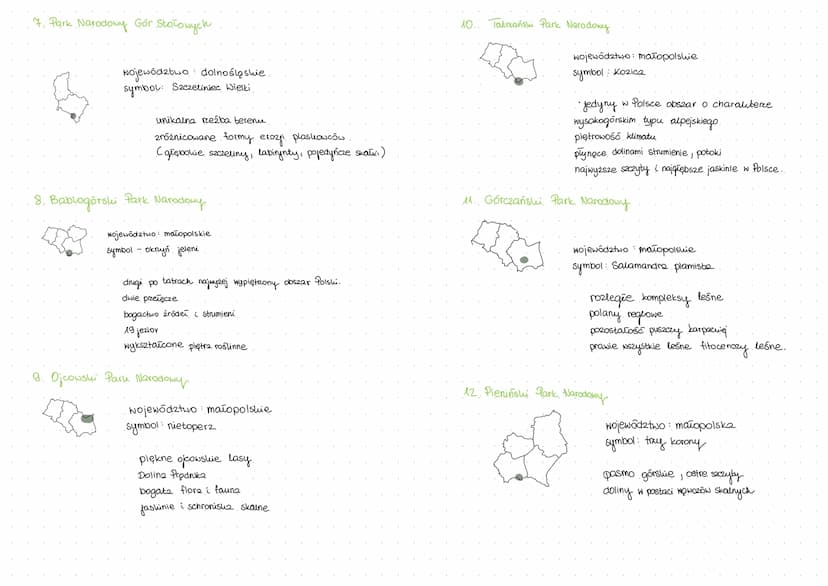 7. Park Narodowy Gór Stołowych
województwo : dolnośląskie
symbol: Szczeliniec Wielki
unikalna rzeźba terenu
zróżnicowane formy erozji piaskowców
(głębokie szczeliny, labirynty, pojedyńcze skałki)
8. Babiogórski Park Narodowy
województwo : małopolskie
symbol - okrzyń jeleni
drugi po tatrach najwyżej wypiętrzony obszar Polski.
dwie przełęcze
bogactwo źródeł i strumieni
19 jezior
wykształcone piętra roślinne
9. Ojcowski Park Narodowy
województwo : małopolskie
symbol : nietoperz
piękne ojcowskie lasy
Dolina Prądnika
bogata flora i fauna
jaskinie i schroniska skalne
10. Tatrzański Park Narodowy
województwo : małopolskie
symbol : Kozica
· jedyny w Polsce obszar o charakterze
wysokogórskim typu alpejskiego
piętrowość klimatu
płynące dolinami strumienie, potoki
najwyższe szczyty i najgłębsze jaskinie w Polsce.
11. Górczański Park Narodowy
województwo : małopolskie
symbol : Salamandra plamista
rozległe kompleksy leśne
polany reglowe
pozostałość puszczy karpackiej
prawie wszystkie leśne fitocenozy leśne.
12. Pieniński Park Narodowy
województwo : małopolska
symbol : trzy korony
pasmo górskie, ostre szczyty
doliny w postaci wąwozów skalnych